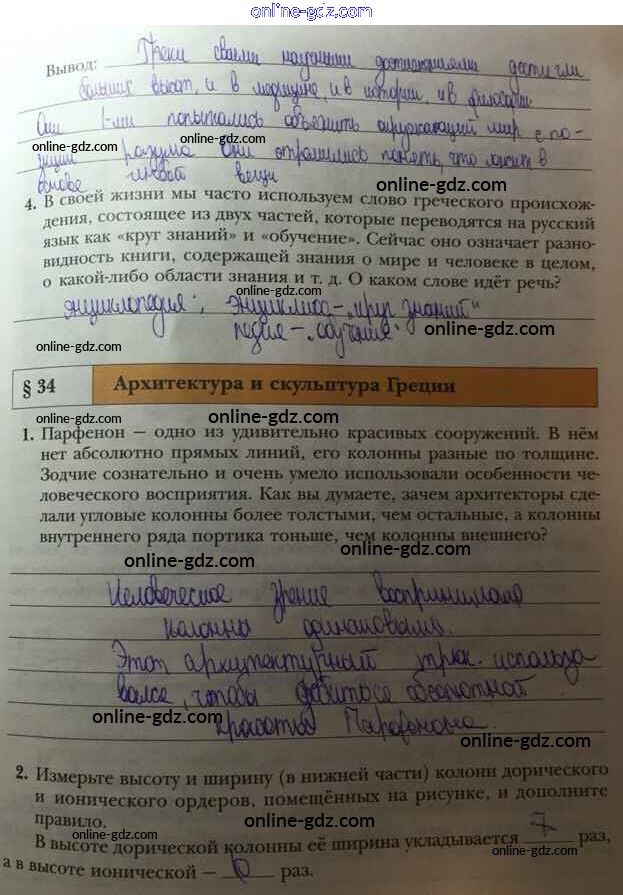 online-gdz.com
Вывод: Греки своими научными достижениями достигли
больших высот, и в медицине, и в истории, и в философии.
Они 1-ми попытались объяснить окружающий мир с по-
online-gdz.com
online-gdz.com
зиции разума они стремились понять, что лежит в
основе любой вещи
online-gdz.com
4. В своей жизни мы часто используем слово греческого происхож-
дения, состоящее из двух частей, которые переводятся на русский
язык как «круг знаний» и «обучение». Сейчас оно означает разно-
видность книги, содержащей знания о мире и человеке в целом,
о какой-либо области знания и т. д. О каком слове идёт речь?
online-gdz.com
энциклопедия; энциклиос – „круг знаний"
педия – „обучение"
online-gdz.com
online-gdz.com
§ 34 Архитектура и скульптура Греции
online-gdz.com
online-gdz.com
online-gdz.com
1. Парфенон — одно из удивительно красивых сооружений. В нём
нет абсолютно прямых линий, его колонны разные по толщине.
Зодчие сознательно и очень умело использовали особенности че-
ловеческого восприятия. Как вы думаете, зачем архитекторы сде-
лали угловые колонны более толстыми, чем остальные, а колонны
внутреннего ряда портика тоньше, чем колонны внешнего?
online-gdz.com
online-gdz.com
Человеческое зрение воспринимало
колонны одинаковыми.
Этот архитектурный трюк использо
вался, чтобы добиться абсолютной
online-gdz.com
красоты Парфенона.
online-gdz.com
2. Измерьте высоту и ширину (в нижней части) колонн дорического
и ионического ордеров, помещённых на рисунке, и дополните
правило.
online-gdz.com
В высоте дорической колонны её ширина укладывается 7 раз,
а в высоте ионической – 6 раз.
online-gdz.com